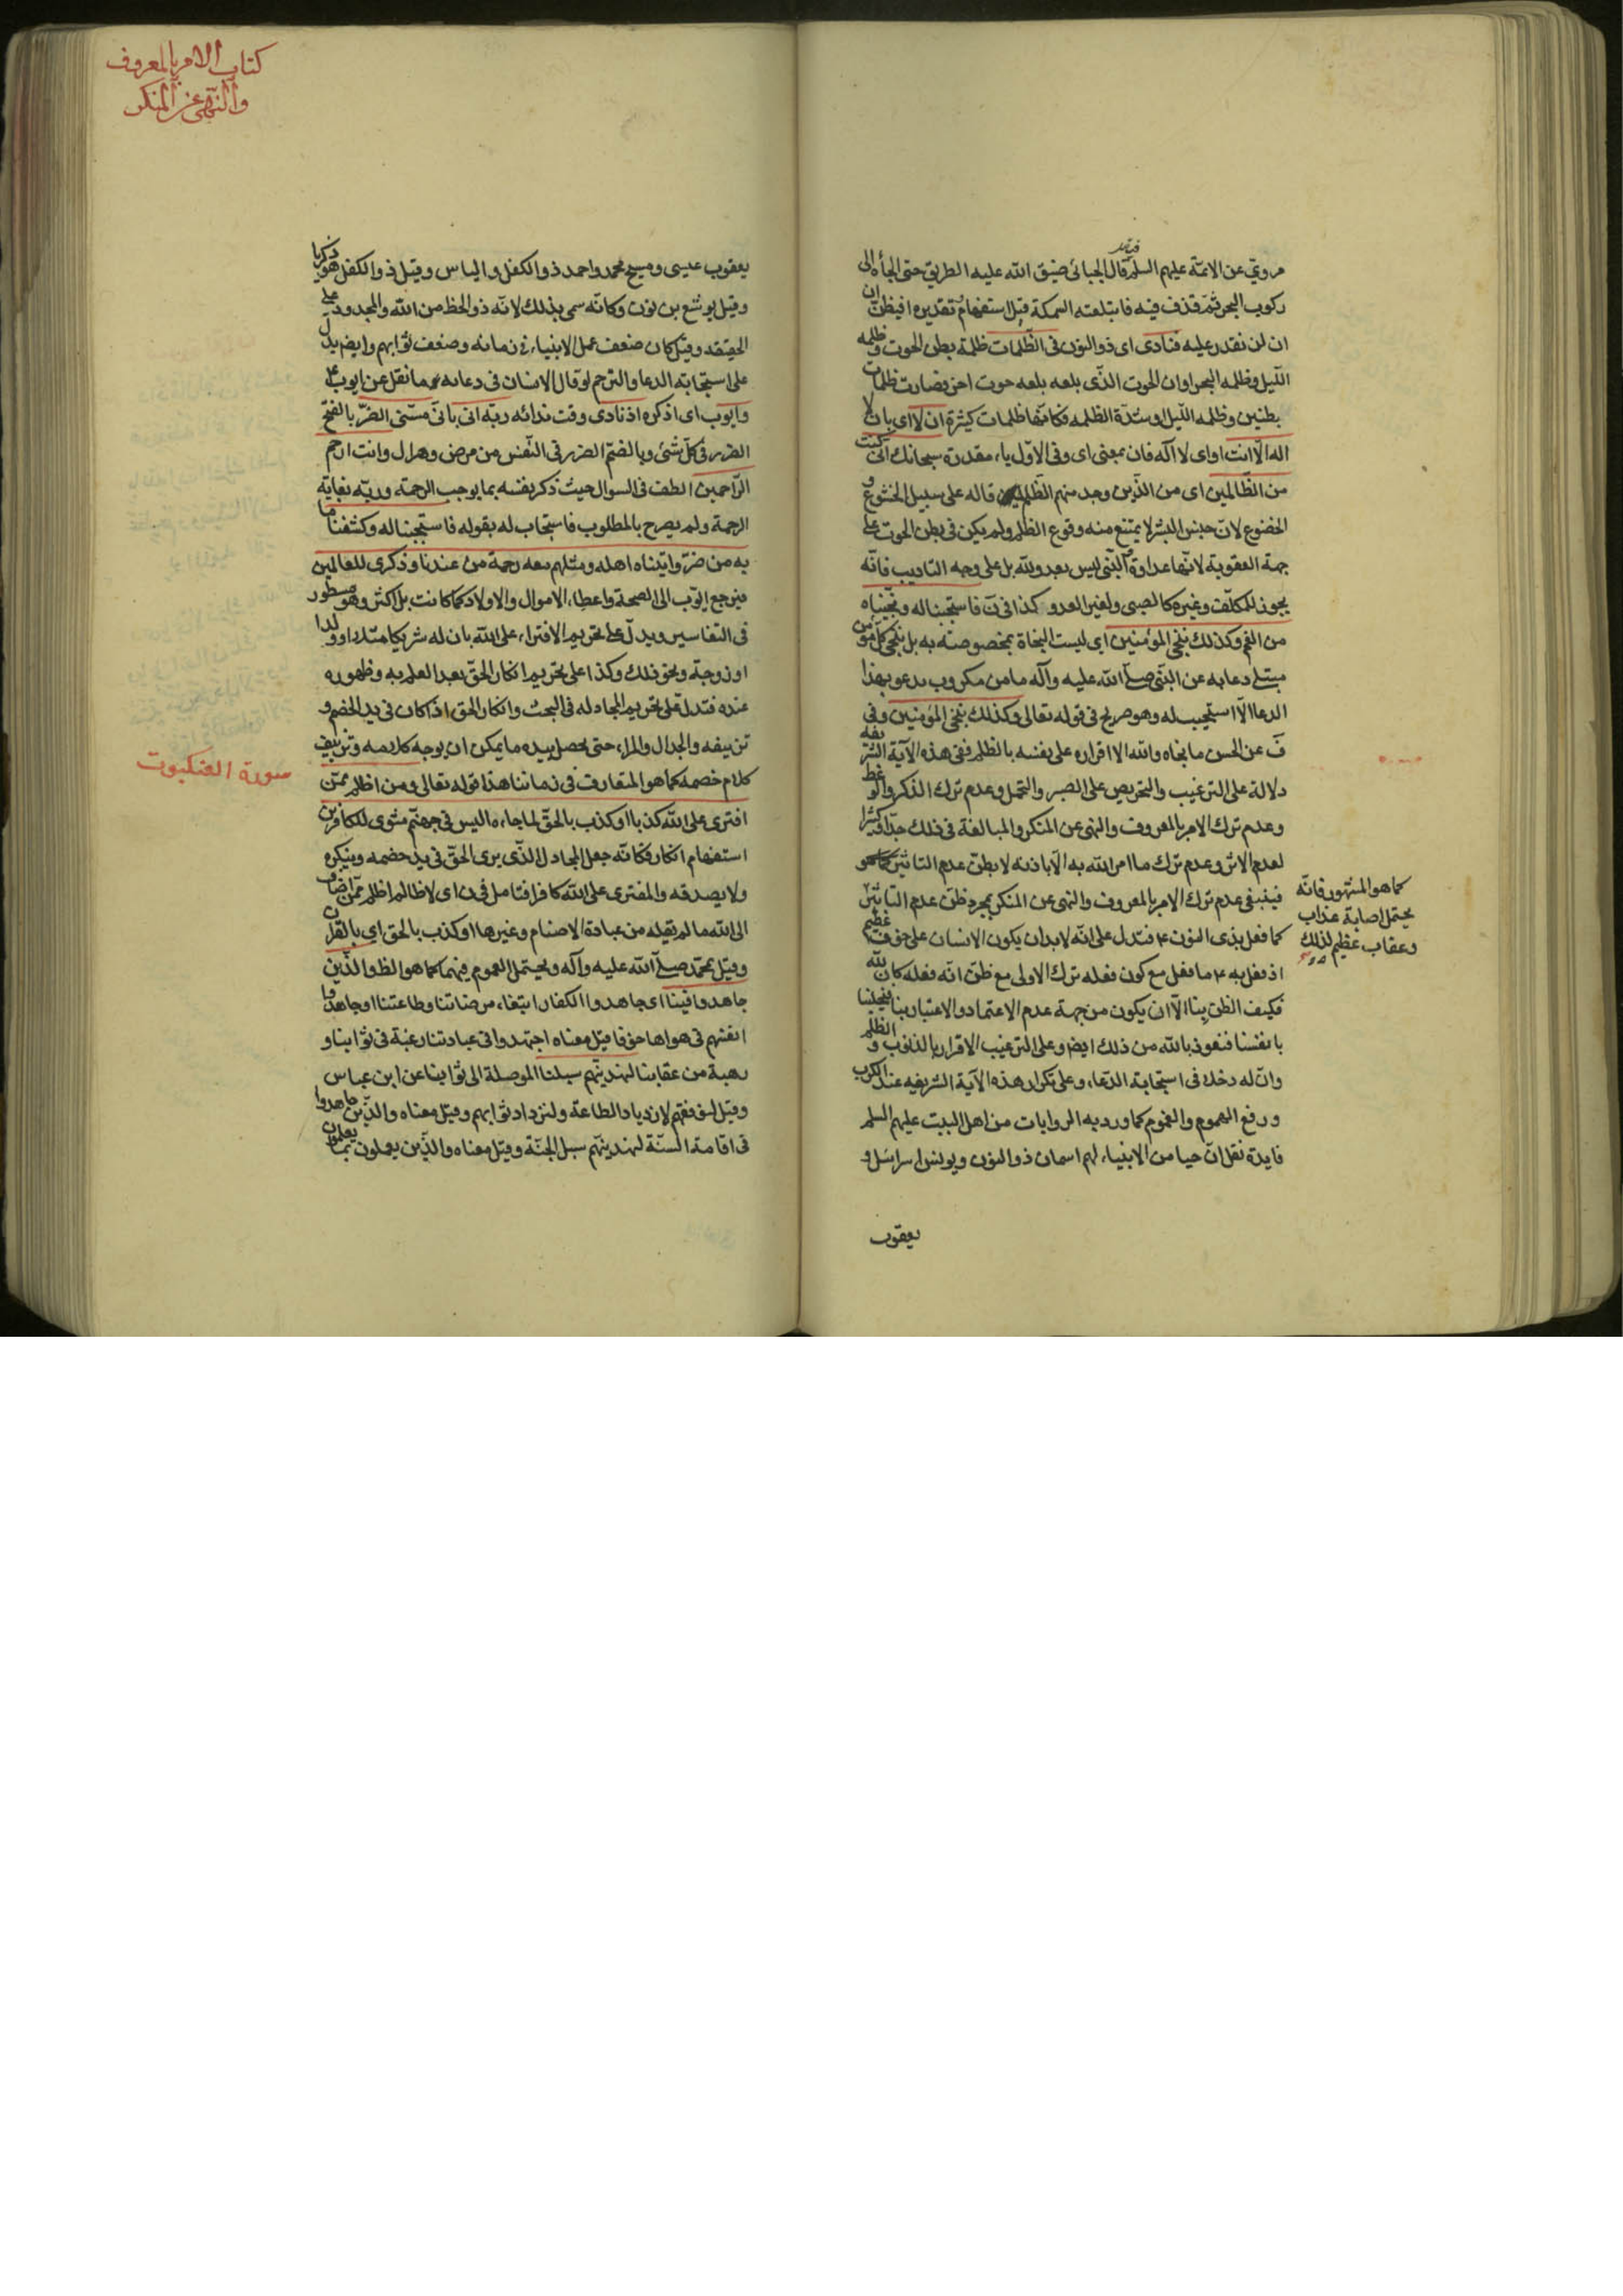 مروي عن الائمة عليهم السلم قال الجبائى ضيق الله عليه الطريق حتى الجأه الى
ركوب البحر ثم قذف فيه فابتلعته السمكة قيل استفهام تقديره افيظن ان
ان لن نقدر عليه فنادى اى ذو النون فى الظلمات ظلمة بطن الحوت وظلمه
الليل وظلمه البحر او ان الحوت الذى بلعه بلعه حوت اخر فصارت ظلمات
بطنين وظلمه الليل او شدة الظلمه فكانها ظلمات كثيرة ان لا اى بان لا
اله الا انت او اى لا اله فان بمعنى اى وفى الاول باء مقدرة سبحانك انى كنت
من الظالمين اى من الذين وجد منهم الظلم قاله على سبيل الخشوع و
الخضوع لان جنس البشر لا يمتنع منه وقوع الظلم ولم يكن فى بطن الحوت على
جهة العقوبة لانها عداوة والنبى ليس بعدو لله بل على وجه التاديب فانه
يجوز للمكلف وغيره كالصبى ولغير العدو كذا فى ن فاستجبنا له ونجيناه
من الغم وكذلك ننجى المؤمنين اى ليست النجاة مخصوصة به بل ننجى كل مؤمن
مبتلى دعا به عن النبى صلى الله عليه وآله ما من مكروب يدعو بهذا
الدعا الا استجيب له وهو صريح فى قوله تعالى وكذلك ننجى المؤمنين وفى
ف عن الحسن ما نجاه والله الا اقراره على نفسه بالظلم ففى هذه الآية الشريفه
دلالة على الترغيب والتحريص على الصبر والتحمل وعدم ترك الذكر والوعظ
وعدم ترك الامر بالمعروف والنهى عن المنكر والمبالغة فى ذلك جدا كثيرا
لعدم الاثر وعدم ترك ما امر الله به الا باذنه لا بظن عدم التاثير
كما هو المشهور فانه
يحتمل اصابة عذاب
وعقاب عظيم لذلك
فينبغى عدم ترك الامر بالمعروف والنهى عن المنكر بمجرد ظن عدم التاثير
كما فعل بذى النون ع فتدل على انه لا بد ان يكون الانسان على خوف عظيم
اذ فعل به ع ما فعل مع كون فعله ترك الاولى مع ظن انه فعله كان لله
فكيف الظن بنا الا ان يكون من جهة عدم الاعتماد والاعتبار بنا
بانفسنا فنعوذ بالله من ذلك ايضا وعلى الترغيب الاقرار بالذنوب و الظلم
وان له دخلا فى استجابة الدعاء وعلى تكرار هذه الآية الشريفه عند الكرب
ورفع الهموم والغموم كما ورد به الروايات من اهل البيت عليهم السلم
فايدة نقل ان حيا من الانبياء لهم اسمان ذو النون ويونس اسرائيل و
يعقوب
كتاب الامر بالمعروف
والنهى عن المنكر
يعقوب عيسى ومسيح محمد واحمد ذو الكفل والياس وقيل ذو الكفل هو زكريا
وقيل يوشع بن نون وكانه سمى بذلك لانه ذو الحظ من الله والمجدود على
الحقيقه وقيل كان ضعف عمل الانبياء فى زمانه وضعف ثوابهم وايضا يدل
على استجابة الدعا والترحم لو قال الانسان فى دعائه ما نقل عن ايوب ع
وايوب اى اذكره اذ نادى وقت ندائه ربه انى بانى مسنى الضر بالفتح
الضرر فى كل شئ وبالضم الضرر فى النفس من مرض وهزال وانت ارحم
الراحمين الطف فى السوال حيث ذكر نفسه بما يوجب الرحمة وربه بغاية
الرحمة ولم يصرح بالمطلوب فاستجاب له بقوله فاستجبنا له وكشفنا ما
به من ضر واتيناه اهله ومثلهم معه رحمة من عندنا وذكرى للعالمين
فيرجع ايوب الى الصحة واعطاء الاموال والاولاد كما كانت بل اكثر وهو مسطور
فى التفاسير ويدل على تحريم الافتراء على الله بان له شريكا مثلا او ولدا
او زوجة ونحو ذلك وكذا على تحريم انكار الحق بعد العلم به وظهوره
عنده فتدل على تحريم المجادله فى البحث وانكار الحق اذا كان فى يد الخصم و
تزييفه والجدال والمراء حتى يحصل بيده ما يمكن ان يوجه كلامه وتزييف
سورة العنكبوت
كلام خصمه كما هو المتعارف فى زماننا هذا قوله تعالى ومن اظلم ممن
افترى على الله كذبا او كذب بالحق لما جاءه اليس فى جهنم مثوى للكافرين
استفهام انكار فكانه جعل المجادل الذى يرى الحق فى يد خصمه وينكره
ولا يصدقه والمفترى على الله كافرا فتامل فى ن اى لا ظالم اظلم ممن اضاف
الى الله ما لم يقله من عبادة الاصنام وغيرها او كذب بالحق اى بالقران
وقيل بمحمد صلى الله عليه وآله ويحتمل العموم فيهما كما هو الظ والذين
جاهدوا فينا اى جاهدوا الكفار ابتغاء مرضاتنا وطاعتنا او جاهدوا
انفسهم فى هواها خوفا قيل معناه اجتهدوا فى عبادتنا رغبة فى ثوابنا و
رهبة من عقابنا لنهدينهم سبلنا الموصلة الى ثوابنا عن ابن عباس
وقيل لنوفقهم لازدياد الطاعة ولنزداد ثوابهم وقيل معناه والذين جاهدوا
فى اقامة السنة لنهدينهم سبل الجنة وقيل معناه والذين يعملون بما يعلمون